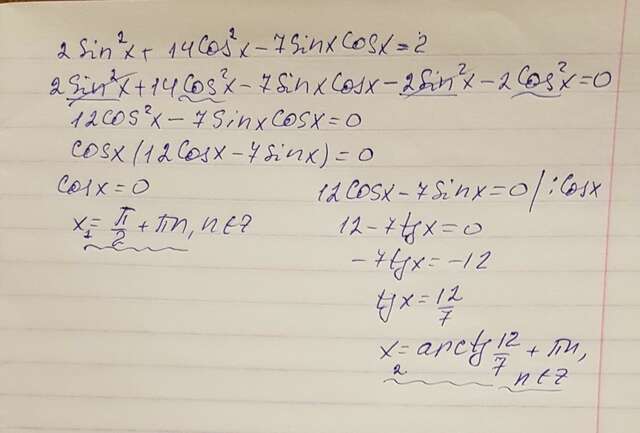 2 sin²x + 14 cos²x - 7 sinx cosx = 2
2 sin²x + 14 cos²x - 7 sinx cosx - 2 sin²x - 2 cos²x = 0
12 cos²x - 7 sinx cosx = 0
cosx (12 cosx - 7 sinx) = 0
cosx = 0    12 cosx - 7 sinx = 0 / : cosx
x₁ = π/2 + πn, n ∈ Z    12 - 7 tgx = 0
-7 tgx = -12
tgx = 12/7
x₂ = arctg 12/7 + πn,
n ∈ Z